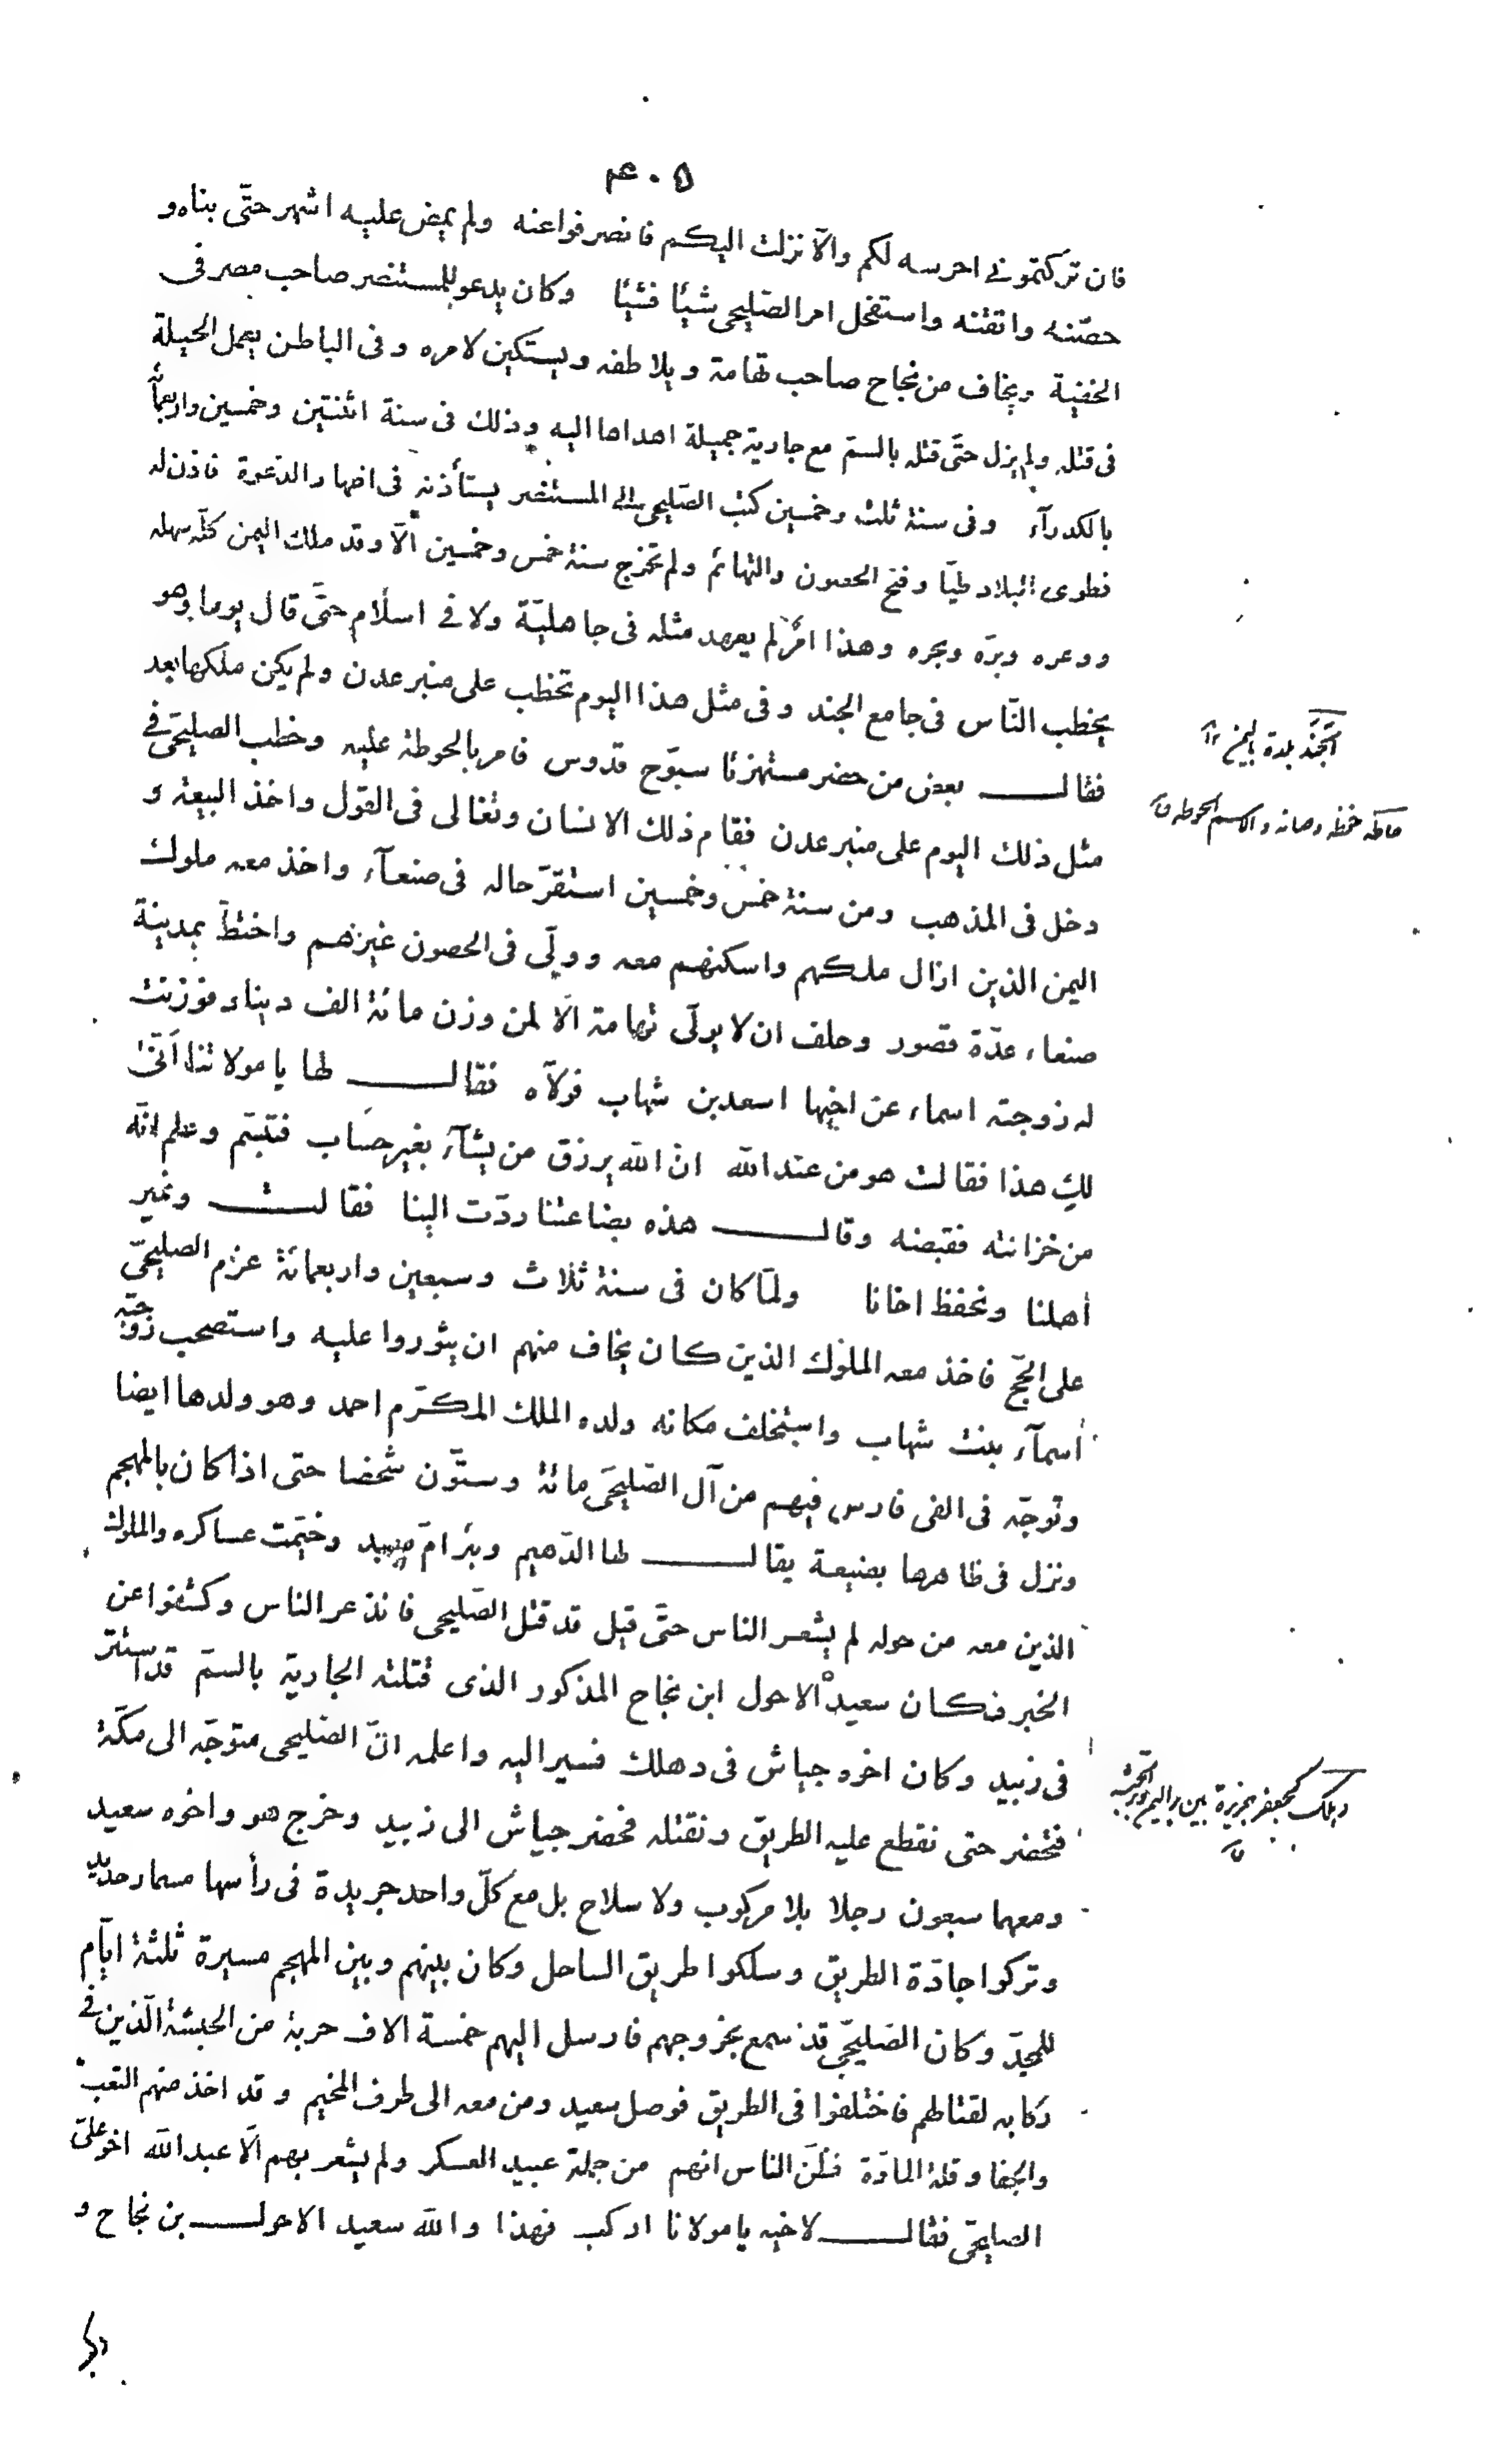 ٤٠٥
فان تركتمونى احرسه لكم والّا نزلت اليكم فانصرفوا عنه ولم يمض عليه اشهر حتّى بناه و
حصّنه واتقنه واستفحل امر الصّليحى شيئًا فشيئًا وكان يدعو للمستنصر صاحب مصر فى
الخفية ويخاف من نجاح صاحب تهامة ويلاطفه ويستكين لامره وفى الباطن يعمل الحيلة
فى قتله ولم يزل حتّى قتله بالسمّ مع جارية جميلة اهداها اليه وذلك فى سنة اثنتين وخمسين واربعمائة
بالكدرآء وفى سنة ثلث وخمسين كتب الصّليحى الى المستنصر يستأذنه فى اظهار الدّعوة فاذن له
فطوى البلاد طيّا وفتح الحصون والتهائم ولم تخرج سنة خمس وخمسين الّا وقد ملك اليمن كلّه سهله
ووعره وبرّه وبحره وهذا امرٌ لم يعهد مثله فى جاهليّة ولا فى اسلام حتّى قال يوما وهو
يخطب النّاس فى جامع الجند وفى مثل هذا اليوم نخطب على منبر عدن ولم يكن ملكها بعد
فقال بعض من حضر مستهزئا سبّوح قدّوس فامر بالحوطة عليه وخطب الصليحّى فى
مثل ذلك اليوم على منبر عدن فقام ذلك الانسان وتغالى فى القول واخذ البيعة و
دخل فى المذهب ومن سنة خمس وخمسين استقرّ حاله فى صنعآء واخذ معه ملوك
اليمن الذين ازال ملكهم واسكنهم معه وولّى فى الحصون غيرهم واختطّ بمدينة
صنعاء عدّة قصور وحلف ان لا يولّى تهامة الّا لمن وزن مائة الف دينار فوزنت
له زوجته اسماء عن اخيها اسعد بن شهاب فولّاه فقال لها يا مولاتنا انّى
لكِ هذا فقالت هو من عند الله انّ الله يرزق من يشآء بغير حساب فتبسّم وعلم انّه
من خزانته فقبضه وقال هذه بضاعتنا ردّت الينا فقالت ونمير
اهلنا ونحفظ اخانا ولمّا كان فى سنة ثلاث وسبعين واربعمائة عزم الصليحّى
على الحّج فاخذ معه الملوك الذين كان يخاف منهم ان يثوروا عليه واستصحب زوجته
اسمآء بنت شهاب واستخلف مكانه ولده الملك المكرّم احمد وهو ولدها ايضا
وتوجّه فى الفى فارس فيهم من آل الصّليحّى مائة وستّون شخصا حتى اذا كان بالمهجم
ونزل فى ظاهرها بضيعة يقال لها الدّهيم وبئر امّ معبد وخيّمت عساكره والملوك
الذين معه من حوله لم يشعر الناس حتّى قيل قد قتل الصّليحى فانذعر الناس وكشفوا عن
الخبر فكان سعيد الاحول ابن نجاح المذكور الذى قتلته الجارية بالسمّ قد استتر
فى زبيد وكان اخوه جياش فى دهلك فسير اليه واعلمه انّ الصّليحى متوجّه الى مكّة
فتحضر حتى نقطع عليه الطريق ونقتله فحضر جياش الى زبيد وخرج هو واخوه سعيد
ومعهما سبعون رجلا بلا مركوب ولا سلاح بل مع كلّ واحد جريدة فى رأسها مسمار حديد
وتركوا جادّة الطريق وسلكوا طريق الساحل وكان بينهم وبين المهجم مسيرة ثلثة ايّام
للمجدّ وكان الصّليحّى قد سمع بخروجهم فارسل اليهم خمسة الاف حربة من الحبشة الّذين فى
ركابه لقتالهم فاختلفوا فى الطريق فوصل سعيد ومن معه الى طرف المخيم وقد اخذ منهم التعب
والجفا وقلة المادّة فظنّ الناس انهم من جملة عبيد العسكر ولم يشعر بهم الّا عبد الله اخو علىّ
الصليحّى فقال لاخيه يا مولانا اركب فهذا والله سعيد الاحول بن نجاح و
الجَنَد بلدة باليمن
حاطه حفظه وصانه والاسم الحوطة ق
دهلك كجعفر جزيرة بين بر اليمن وبر الحبشة
ق